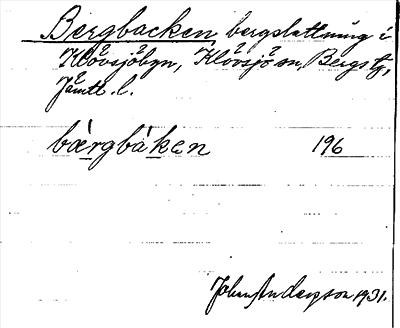 Bergbacken bergsluttning i
Klövsjöbyn, Klövsjö sn, Bergs tg,
Jämtl. l.
bærgbáken 196
Johan Anderson 1931.